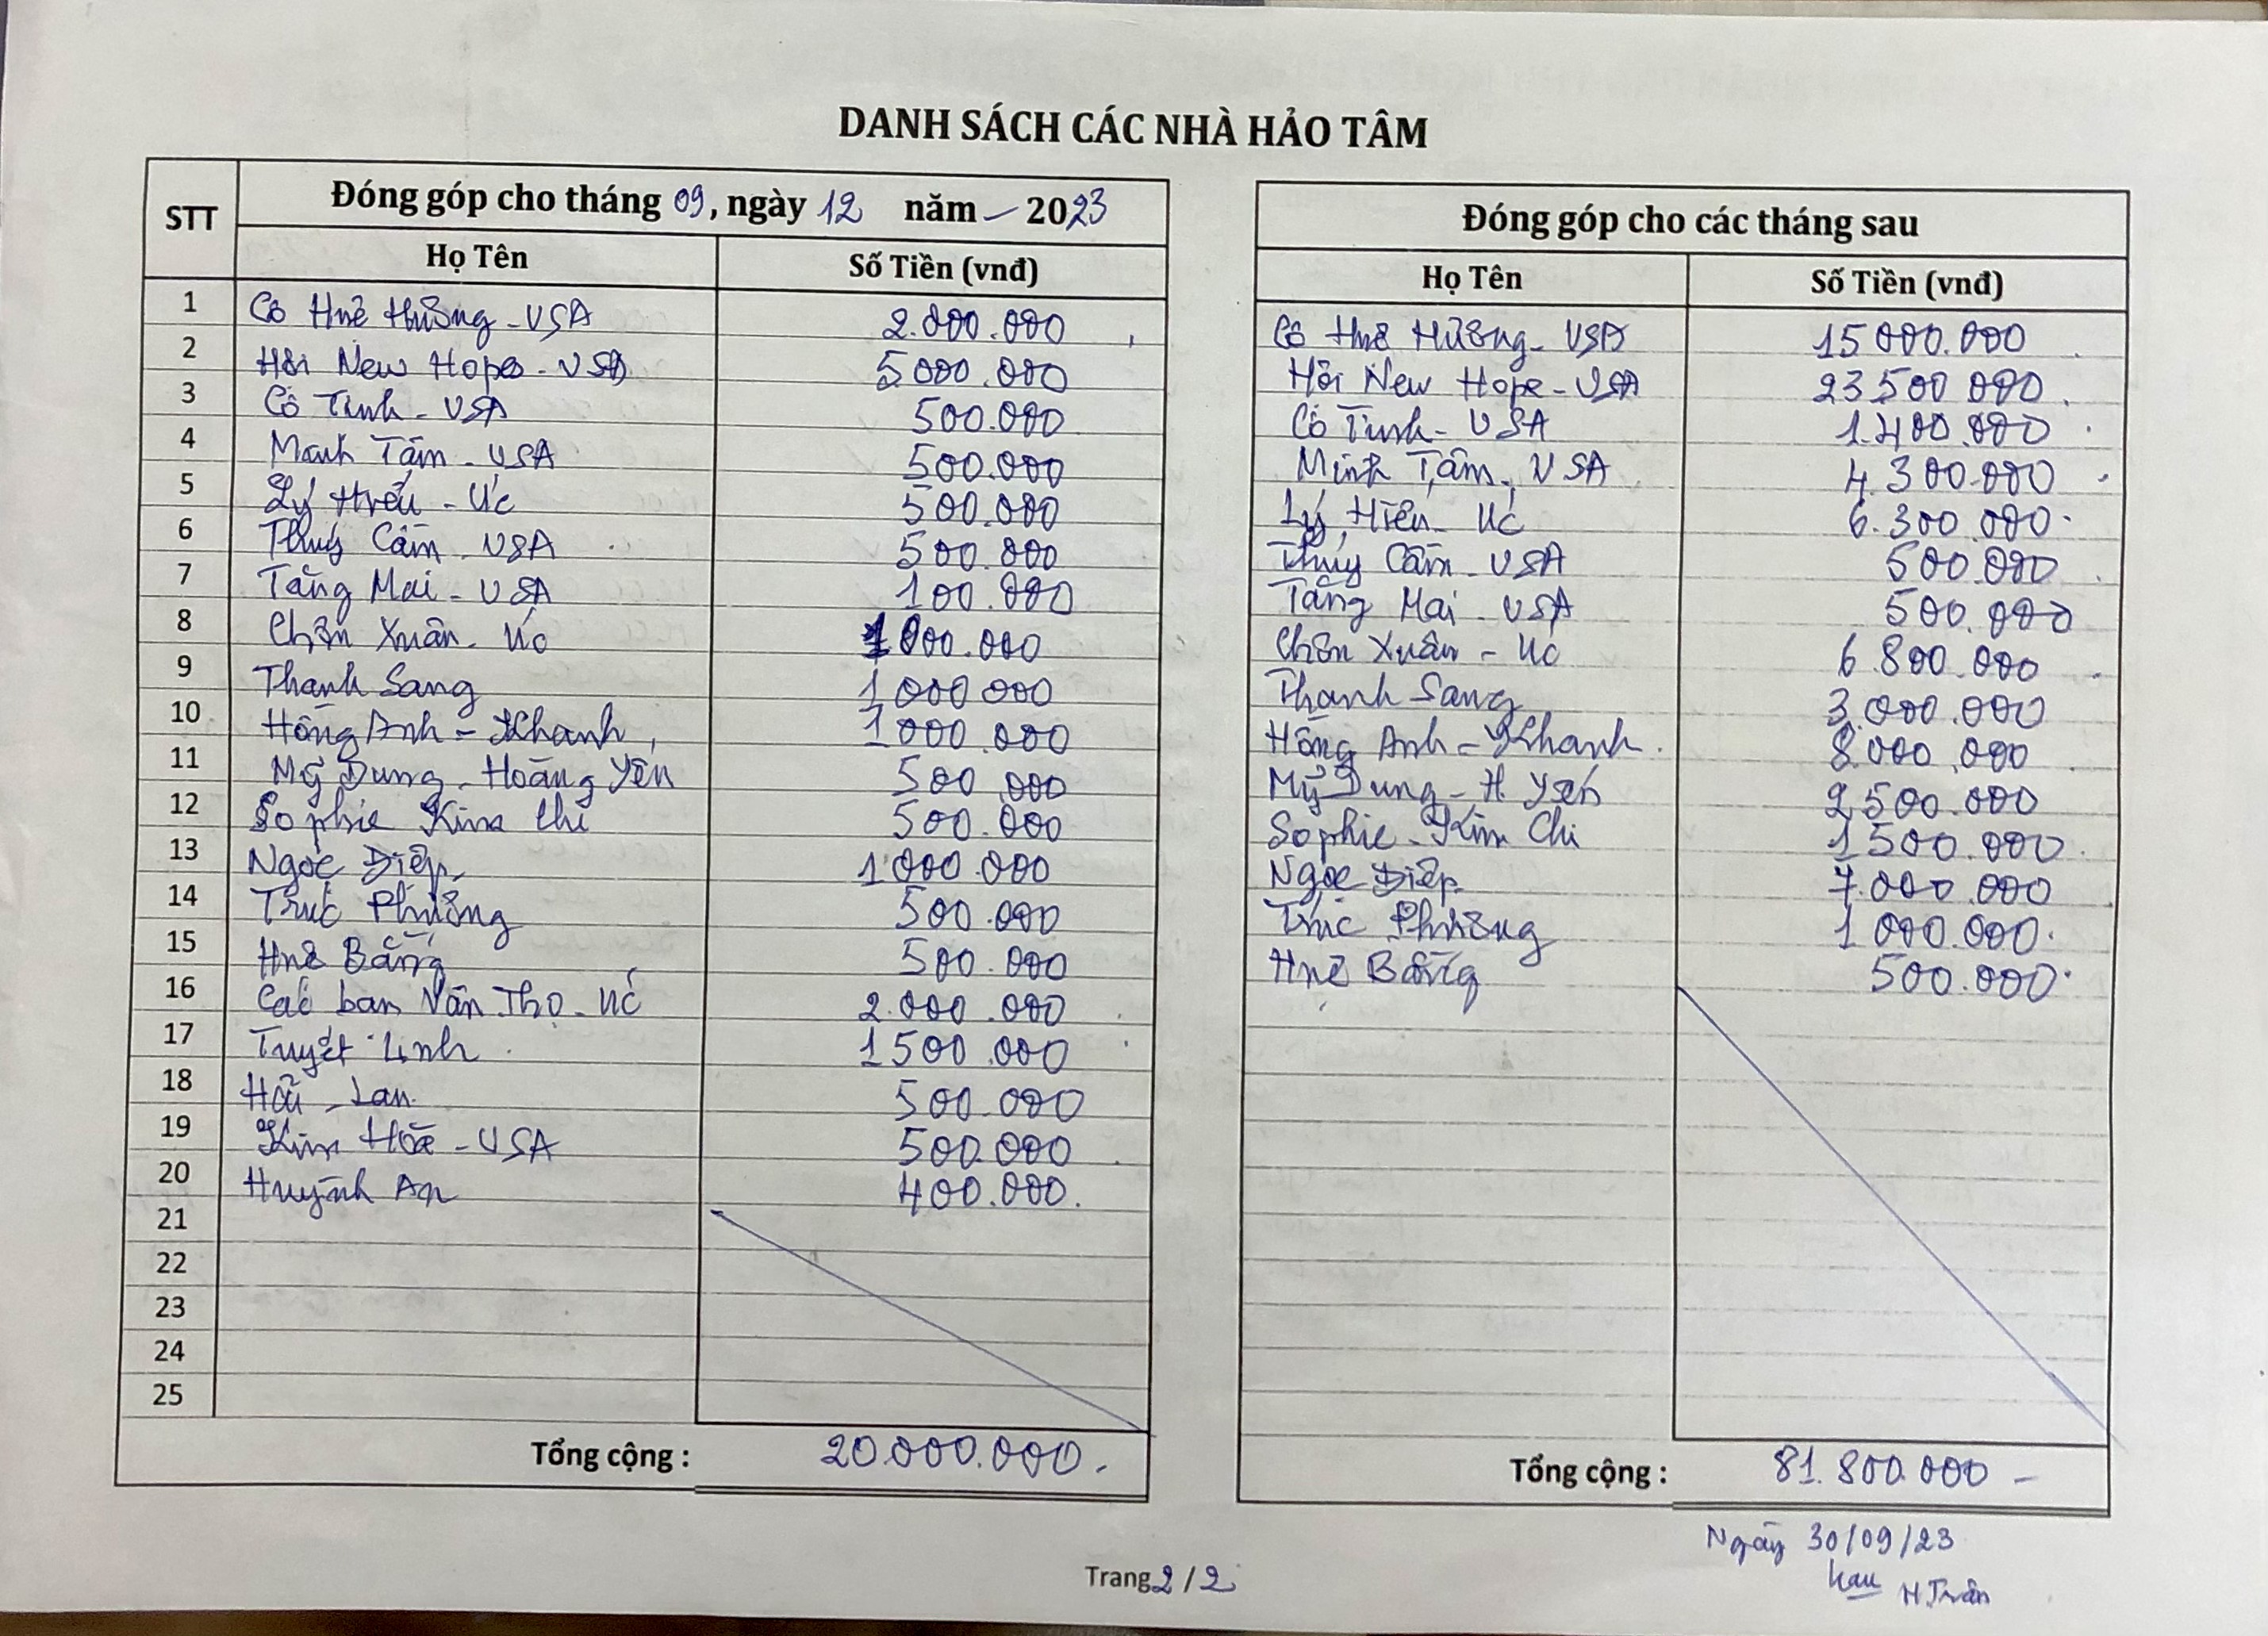 DANH SÁCH CÁC NHÀ HẢO TÂM
STT
Đóng góp cho tháng 09, ngày 12 năm - 2023
Họ Tên Số Tiền (vnđ)
1 Cô Huê Hương - USA 2.000.000
2 Hội New Hope - USA 5000.000
3 Cô Tinh - USA 500.000
4 Minh Tâm - USA 500.000
5 Lý Hiếu - Úc 500.000
6 Thuý Cầm - USA 500.000
7 Tăng Mai - USA 100.000
8 Chơn Xuân - Úc 1000.000
9 Thanh Sang 1000000
10 Hồng Anh - Khanh 1000.000
11 Mỹ Dung - Hoàng Yến 500.000
12 Sophie Kim Chi 500.000
13 Ngọc Điệp 1.000.000
14 Trúc Phương 500.000
15 Huê Bằng 500.000
16 Các bạn Vân Thọ - Úc 2.000.000
17 Tuyết Linh 1500.000
18 Lan 500.000
19 Kim Hoa - USA 500.000
20 Huỳnh An 400.000.
21
22
23
24
25
Tổng cộng : 20.000.000.
Đóng góp cho các tháng sau
Họ Tên Số Tiền (vnđ)
Cô Huê Hương - USA 15000.000
Hội New Hope - USA 23500000
Cô Tinh - USA 1.400.000
Minh Tâm - USA 4.300.000
Lý Hiếu - Úc 6.300.000
Thúy Cầm - USA 500.000
Tăng Mai - USA 500.000
Chơn Xuân - Úc 6.800.000
Thanh Sang 3.000.000
Hồng Anh - Khanh. 8.000.000
Mỹ Dung - H Yến 2500.000
Sophie - Kim Chi 1500.000
Ngọc Điệp 7.000.000
Trúc Phương 1000.000.
Huê Bằng 500.000
Tổng cộng : 81.800.000 -
Ngày 30/09/23
H. Trân
Trang 2 / 2